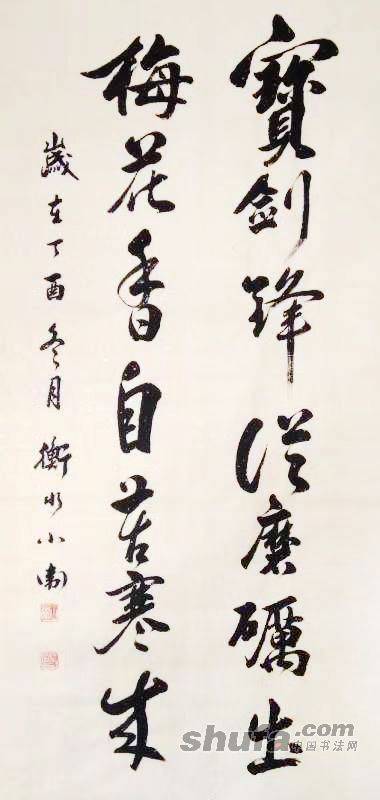 寶劍鋒從磨礪出
梅花香自苦寒來
歲在丁酉冬月衡水小南
shufa.com
中国书法网